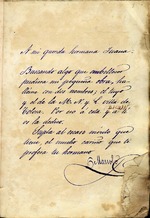 A mi querida hermana Juana.
Buscando algo que
mi pequeña obra, ha-
con dos nombres; el tuyo
y el de la M. N. y L. villa de
Tolosa. Por eso á ella y á ti
os la dedico.
Supla al escaso mérito que
tiene, el mucho cariño que te
profesa tu hermano